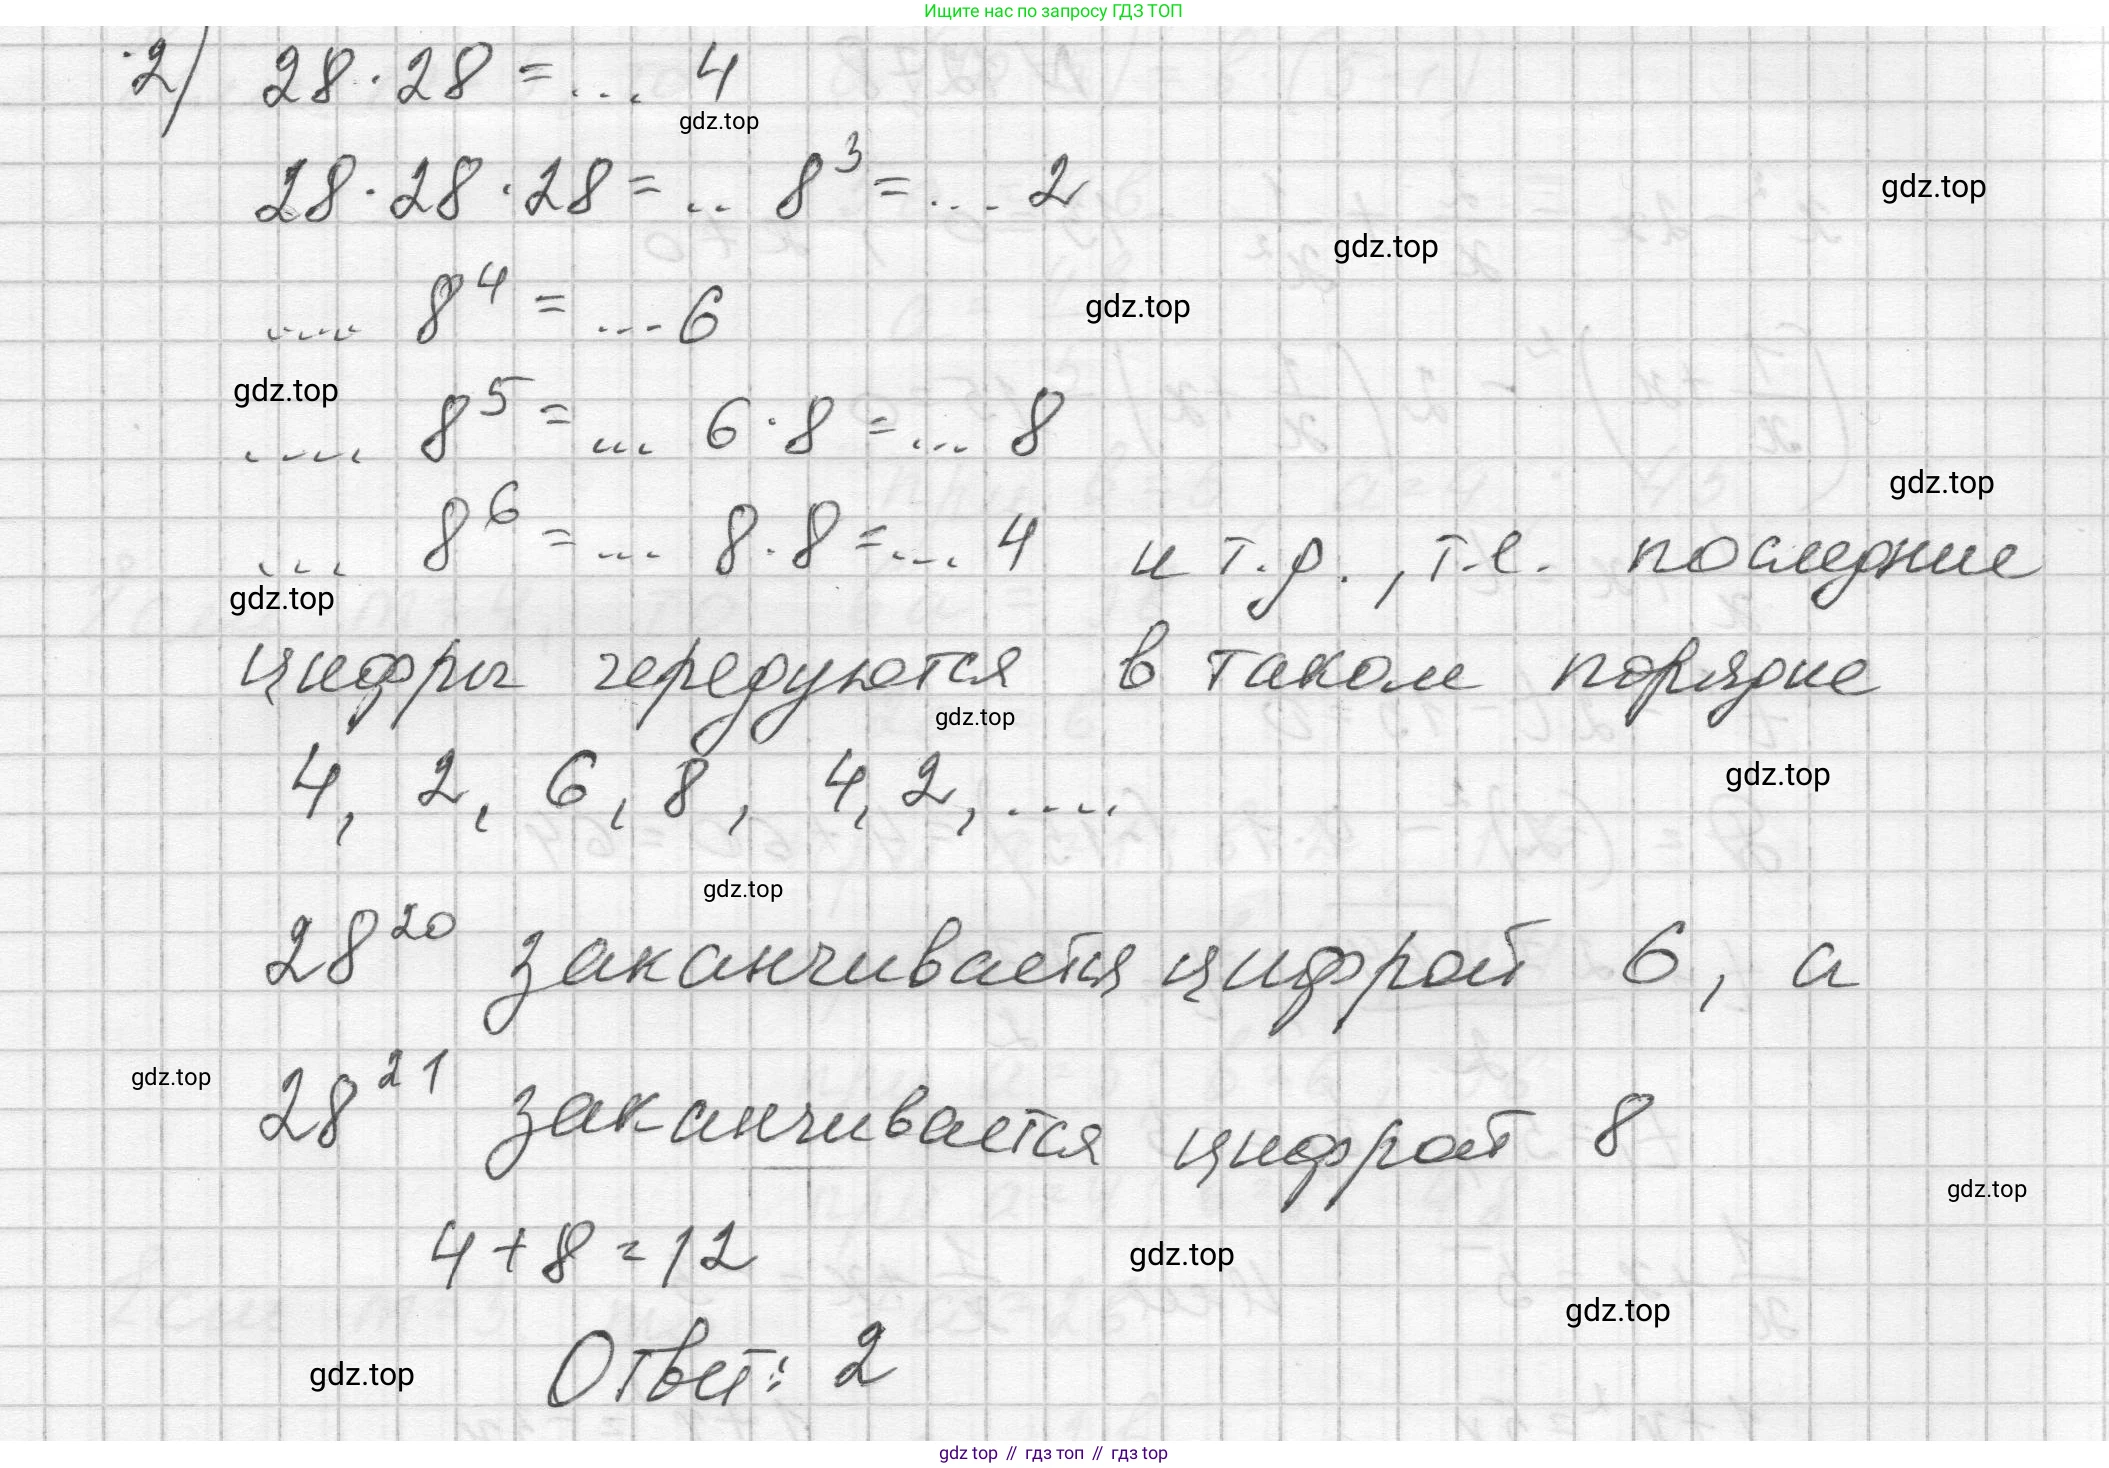 Ищите нас по запросу ГДЗ ТОП
2) 28·28=... 4
gdz.top
28·28·28=.. 8³=... 2
gdz.top
gdz.top
.... 8⁴=...6
gdz.top
gdz.top
.... 8⁵=... 6·8=... 8
gdz.top
... 8⁶=... 8·8=... 4 и т.д., т.е. последние
gdz.top
цифры чередуются в таком порядке
gdz.top
4, 2, 6, 8, 4, 2, ....
gdz.top
gdz.top
28²⁰ заканчивается цифрой 6, а
gdz.top
28²¹ заканчивается цифрой 8
gdz.top
4+8=12
gdz.top
gdz.top
Ответ: 2
gdz.top
gdz top // гдз топ // гдз top